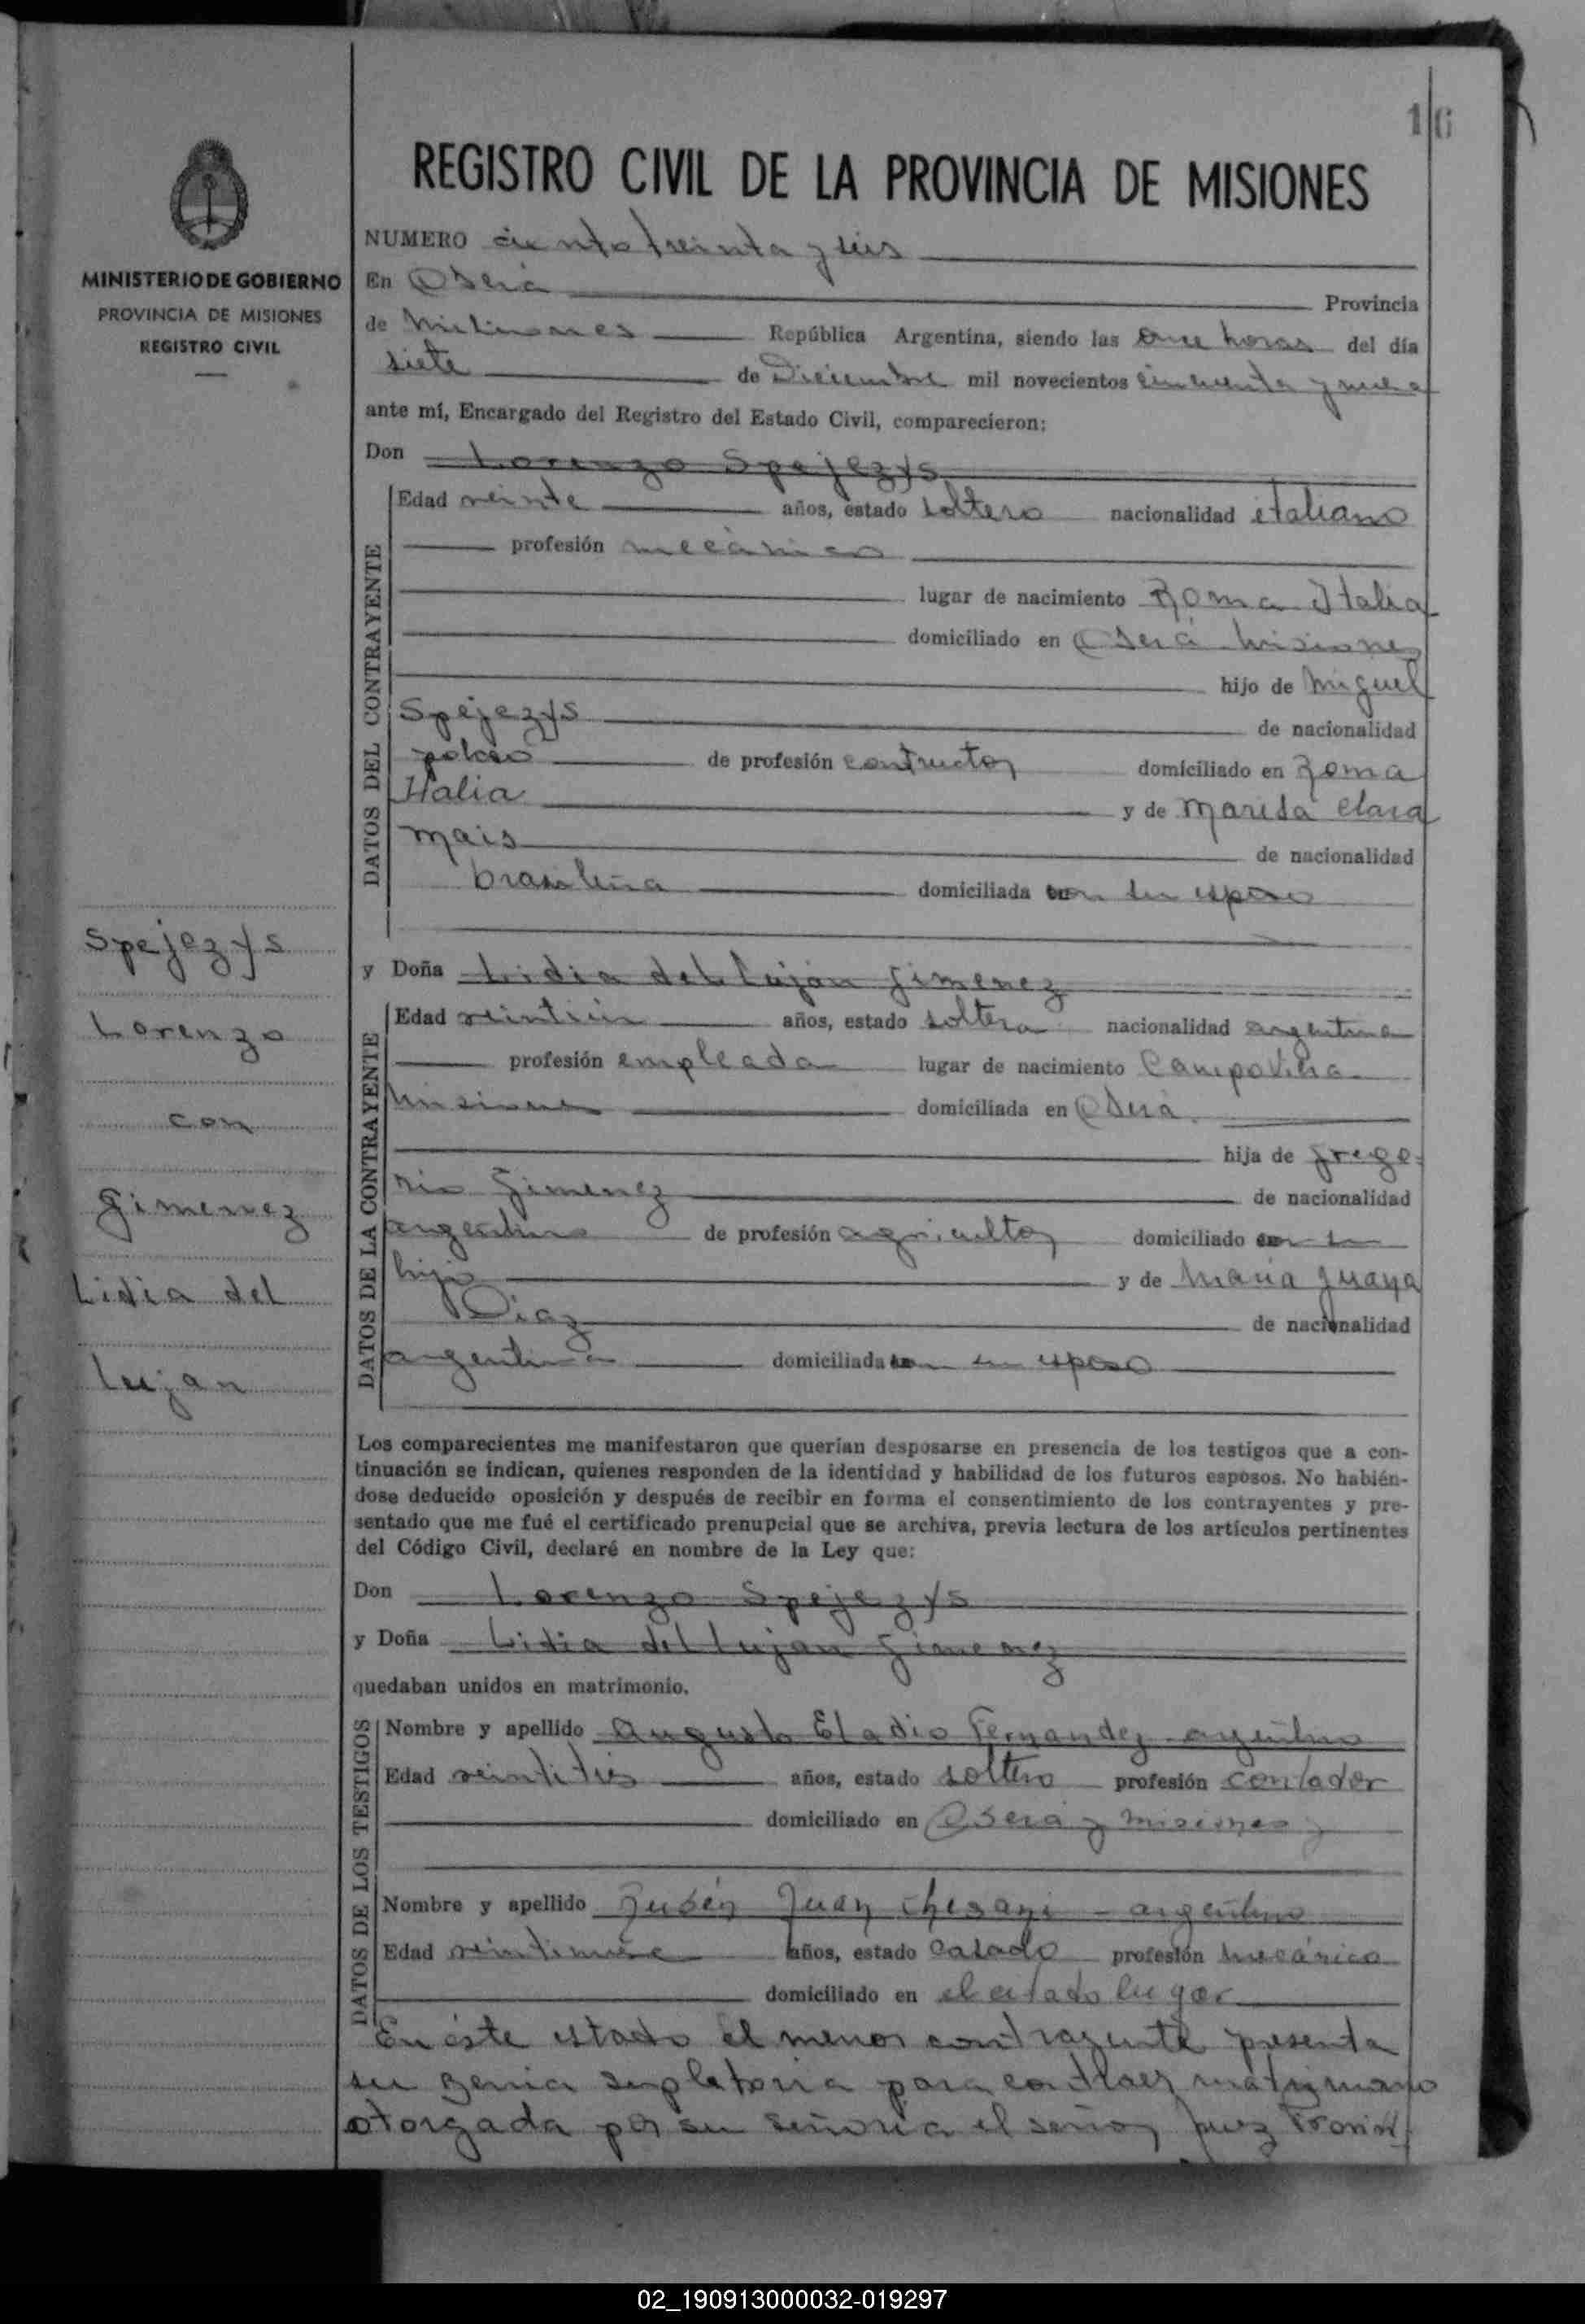 16
REGISTRO CIVIL DE LA PROVINCIA DE MISIONES
NUMERO ciento treinta y seis
MINISTERIO DE GOBIERNO
PROVINCIA DE MISIONES
REGISTRO CIVIL
En Oberá Provincia
de Misiones República Argentina, siendo las once horas del día
siete de Diciembre mil novecientos cincuenta y nueve
ante mí, Encargado del Registro del Estado Civil, comparecieron:
Don Lorenzo Spejezys
DATOS DEL CONTRAYENTE
Edad veinte años, estado soltero nacionalidad italiano
profesión mecánico
lugar de nacimiento Roma Italia
domiciliado en Oberá Misiones
hijo de Miguel
Spejezys de nacionalidad
polaco de profesión contructor domiciliado en Roma
Italia y de Marida Clara
Mais de nacionalidad
brasileña domiciliada con su esposo
y Doña Lidia del Luján Gimenez
DATOS DE LA CONTRAYENTE
Edad años, estado soltera nacionalidad argentina
profesión empleada lugar de nacimiento Campo Viera
Misiones domiciliada en Oberá
hija de Grego-
rio Gimenez de nacionalidad
argentino de profesión agricultor domiciliado con su
hija y de Maria Juana
Diaz de nacionalidad
argentina domiciliada con su esposo
Spejezys
Lorenzo
con
Gimenez
Lidia del
Lujan
Los comparecientes me manifestaron que querían desposarse en presencia de los testigos que a con-
tinuación se indican, quienes responden de la identidad y habilidad de los futuros esposos. No habién-
dose deducido oposición y después de recibir en forma el consentimiento de los contrayentes y pre-
sentado que me fué el certificado prenupcial que se archiva, previa lectura de los artículos pertinentes
del Código Civil, declaré en nombre de la Ley que:
Don Lorenzo Spejezys
y Doña Lidia del Lujan Gimenez
quedaban unidos en matrimonio.
DATOS DE LOS TESTIGOS
Nombre y apellido Augusto Eladio Fernandez argentino
Edad veintitres años, estado soltero profesión contador
domiciliado en Oberá Misiones
Nombre y apellido Rubén Juan argentino
Edad veintinueve años, estado casado profesión mecánico
domiciliado en el citado lugar
En éste estado el menor contrayente presenta
su venia supletoria para contraer matrimonio
otorgada por su Señoria el señor Juez
02_190913000032-019297